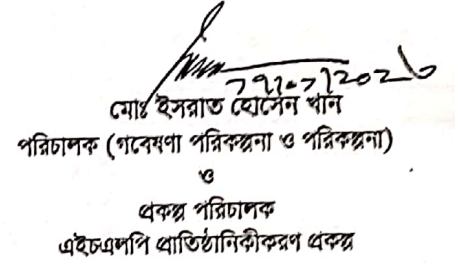 মোঃ ইসরাত হোসেন খান
পরিচালক (গবেষণা পরিকল্পনা ও পরিকল্পনা)
ও
প্রকল্প পরিচালক
এইচএমপি প্রাতিষ্ঠানিকীকরণ প্রকল্প